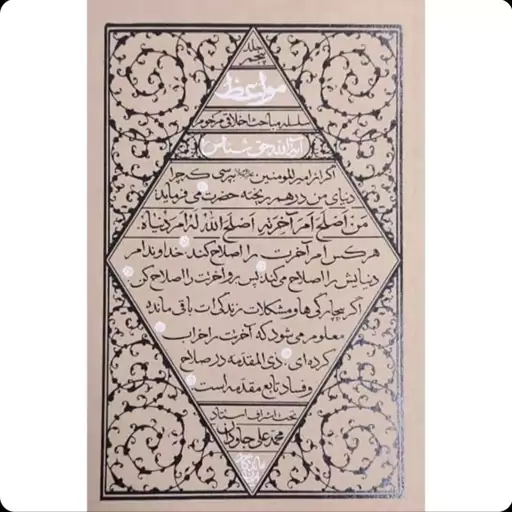 جلد پنجم
مواعظ
سلسله مباحث اخلاقی مرحوم
آیةالله حق شناس
اگر از امیرالمومنین علیه‌السلام بپرسی که چرا
دنیای من درهم ریخته حضرت می فرماید:
مَن اَصلَحَ اَمرَ آخِرَتِهِ اَصلَحَ اللهُ لَهُ اَمرَ دُنیاهُ
هر کس امر آخرت را اصلاح کند خداوند امر
دنیایش را اصلاح می کند پس برو آخرتت را اصلاح کن
اگر بیچارگی ها و مشکلات زندگی ات باقی ماند
معلوم می شود که آخرتت را خراب
کرده ای ذی المقدمه در صلاح
و فساد تابع مقدمه است
تحت اشراف استاد
محمد علی جاودان